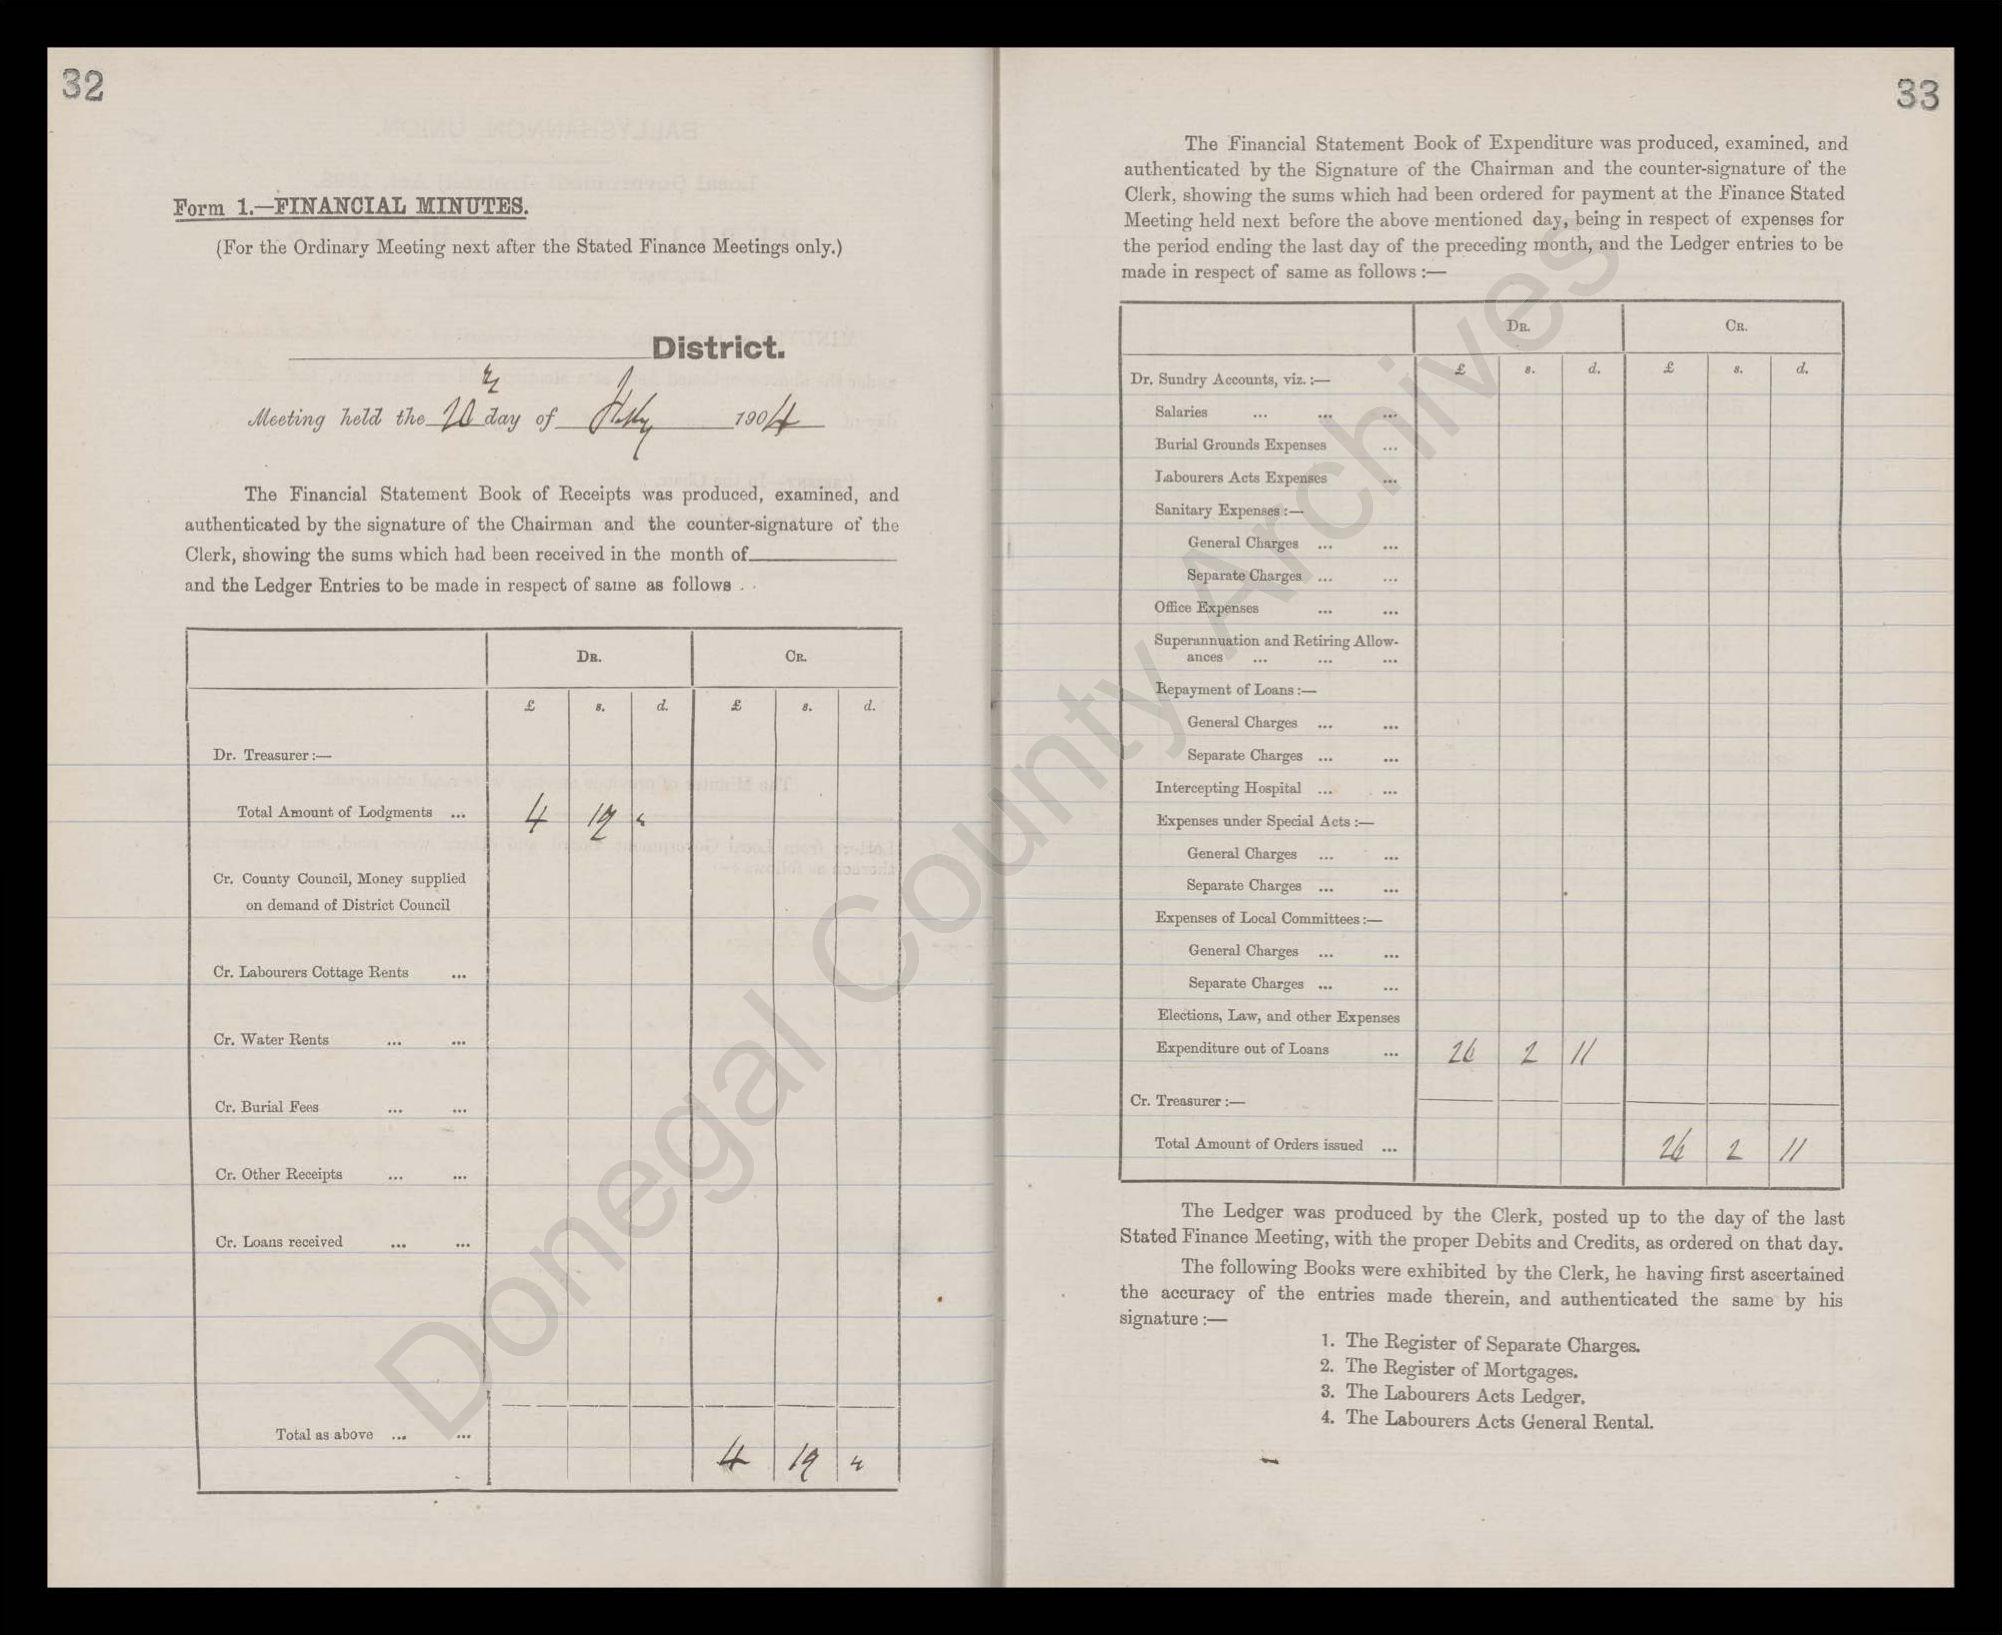 32
Form 1.—FINANCIAL MINUTES.
(For the Ordinary Meeting next after the Stated Finance Meetings only.)
District.
Meeting held the day of 1904
The Financial Statement Book of Receipts was produced, examined, and
authenticated by the signature of the Chairman and the counter-signature of the
Clerk, showing the sums which had been received in the month of
and the Ledger Entries to be made in respect of same as follows . .
DR. CR.
£ s. d. £ s. d.
Dr. Treasurer :—
Total Amount of Lodgments ... 4 19 4
Cr. County Council, Money supplied
on demand of District Council
Cr. Labourers Cottage Rents ...
Cr. Water Rents ... ...
Cr. Burial Fees ... ...
Cr. Other Receipts ... ...
Cr. Loans received ... ...
Total as above ... ... 4 19 4
33
The Financial Statement Book of Expenditure was produced, examined, and
authenticated by the Signature of the Chairman and the counter-signature of the
Clerk, showing the sums which had been ordered for payment at the Finance Stated
Meeting held next before the above mentioned day, being in respect of expenses for
the period ending the last day of the preceding month, and the Ledger entries to be
made in respect of same as follows :—
DR. CR.
£ s. d. £ s. d.
Dr. Sundry Accounts, viz. :—
Salaries ... ... ...
Burial Grounds Expenses ...
Labourers Acts Expenses ...
Sanitary Expenses :—
General Charges ... ...
Separate Charges ... ...
Office Expenses ... ...
Superannuation and Retiring Allow-
ances ... ... ...
Repayment of Loans :—
General Charges ... ...
Separate Charges ... ...
Intercepting Hospital ... ...
Expenses under Special Acts :—
General Charges ... ...
Separate Charges ... ...
Expenses of Local Committees :—
General Charges ... ...
Separate Charges ... ...
Elections, Law, and other Expenses
Expenditure out of Loans ... 26 2 11
Cr. Treasurer :—
Total Amount of Orders issued ... 26 2 11
The Ledger was produced by the Clerk, posted up to the day of the last
Stated Finance Meeting, with the proper Debits and Credits, as ordered on that day.
The following Books were exhibited by the Clerk, he having first ascertained
the accuracy of the entries made therein, and authenticated the same by his
signature :—
1. The Register of Separate Charges.
2. The Register of Mortgages.
3. The Labourers Acts Ledger.
4. The Labourers Acts General Rental.
Donegal County Archives